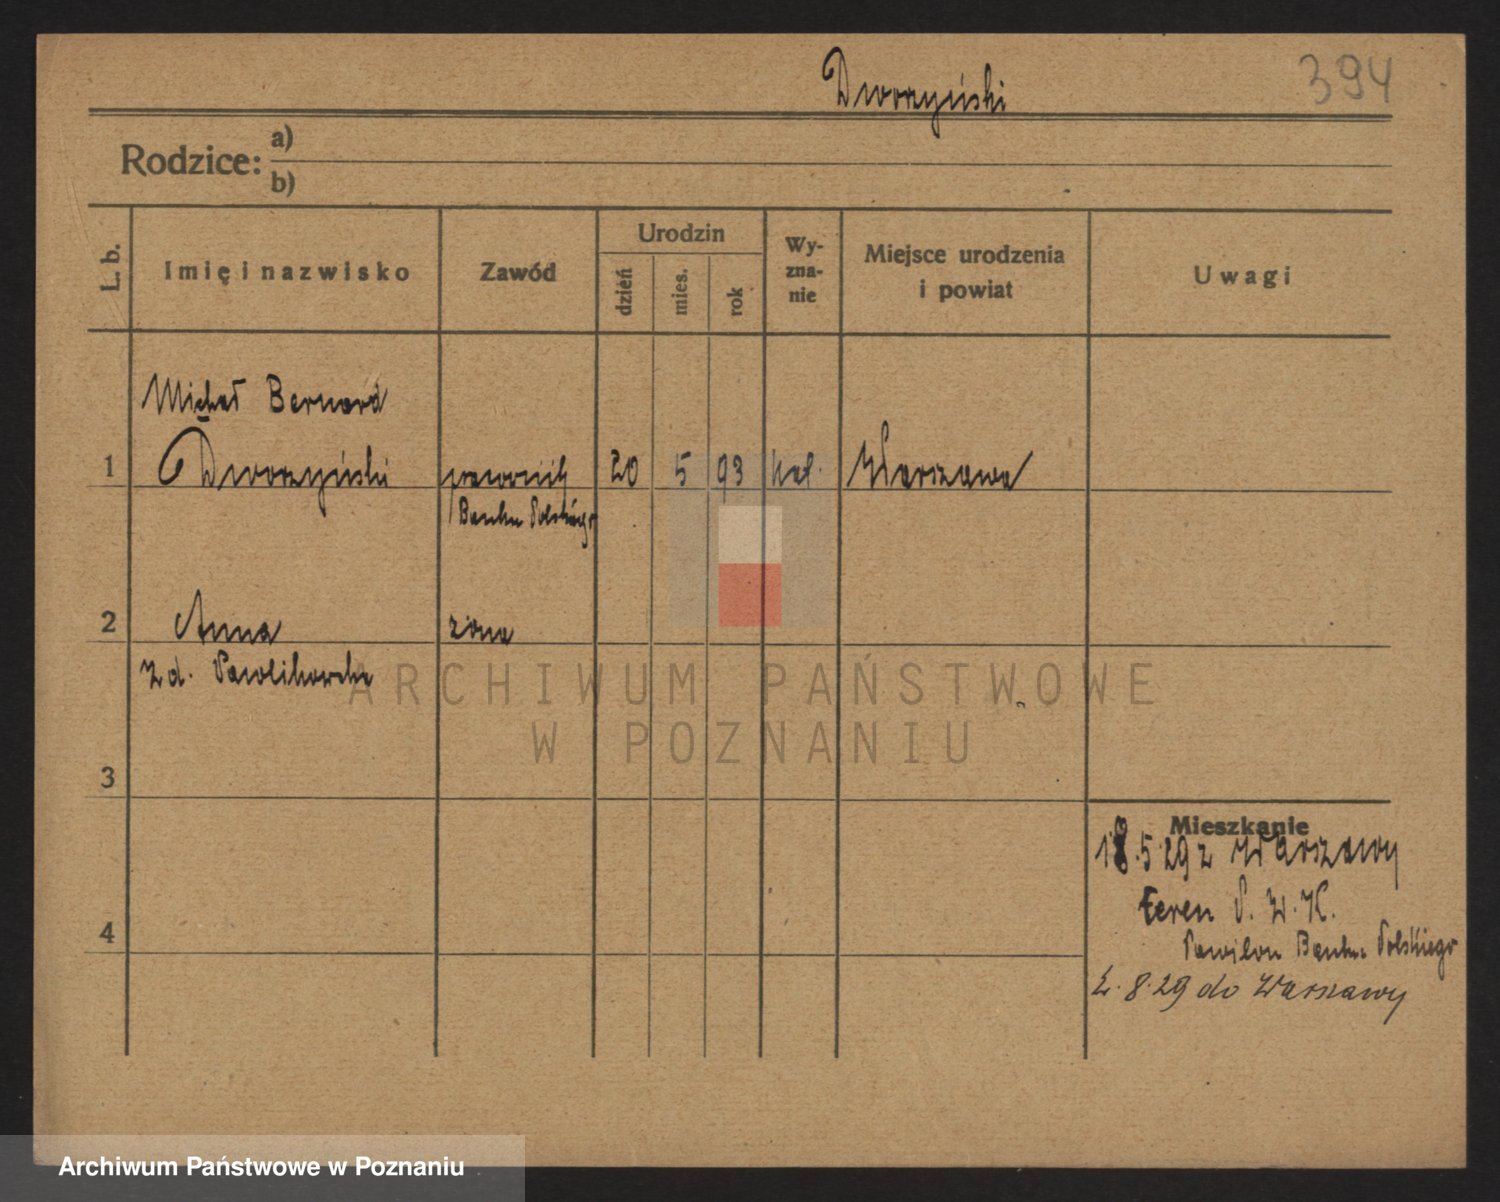 Dworzyński
394
Rodzice: a)
b)
L. b.
Imię i nazwisko
Zawód
Urodzin
dzień
mies.
rok
Wy-
zna-
nie
Miejsce urodzenia
i powiat
Uwagi
Michał Bernard
1 Dworzyński pracownik 20 5 93 kat. Warszawa
Banku Polskiego
2 Anna żona
z d. Pawlikowska
ARCHIWUM PAŃSTWOWE
W POZNANIU
3
Mieszkanie
18.5.29 z Warszawy
teren P. W. K.
4
Pawilon Banku Polskiego
8.29 do Warszawy
Archiwum Państwowe w Poznaniu